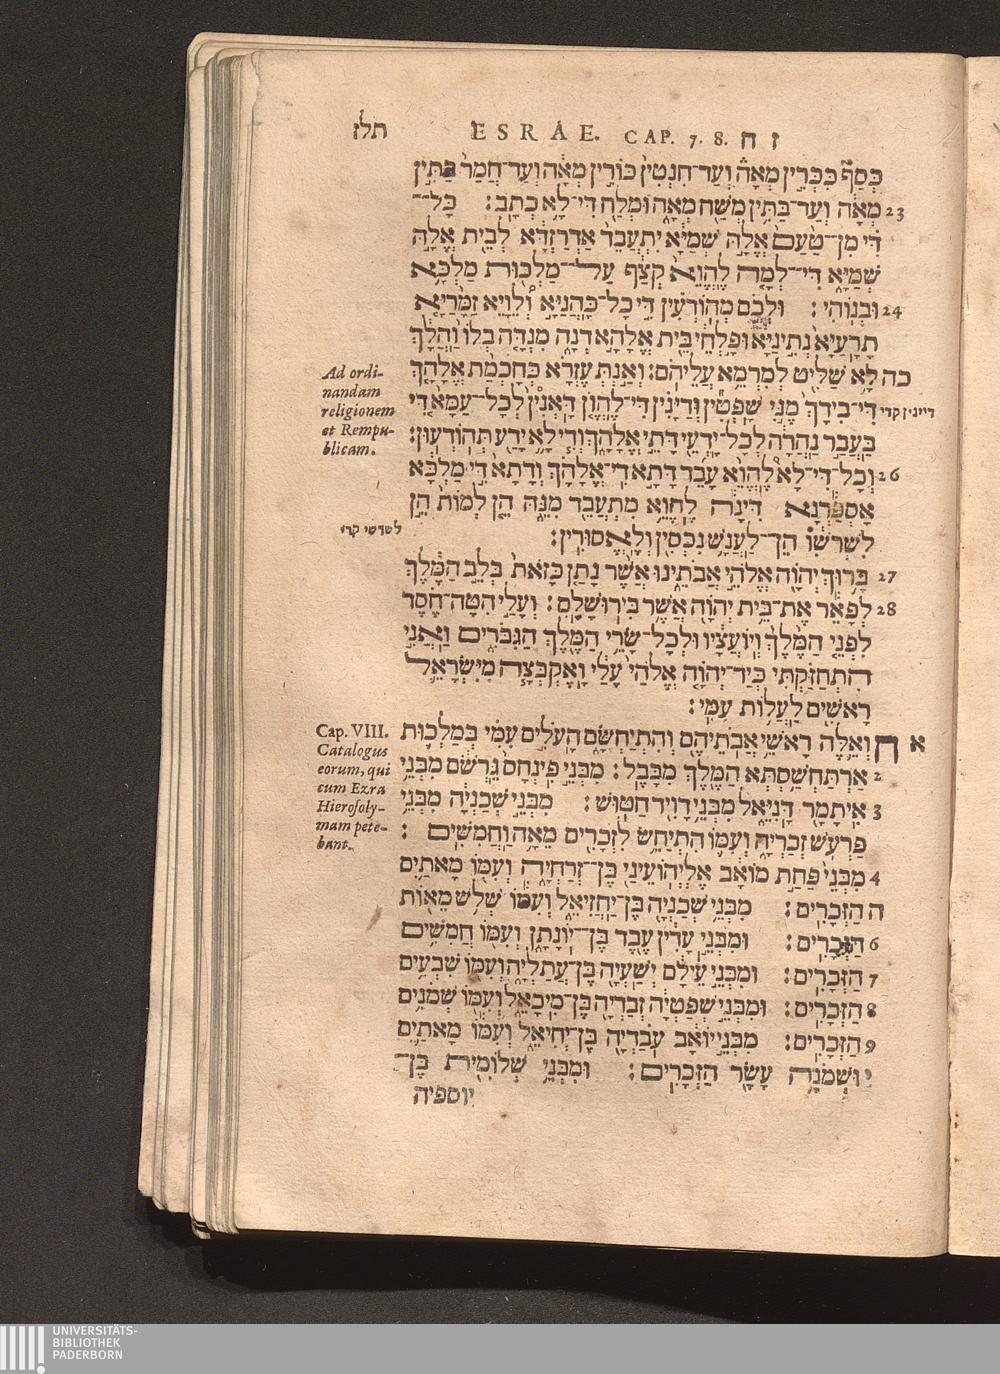 תלז ESRAE. CAP. 7. 8. ז ח
כְּסַף כַּכְּרִין מְאָה וְעַד־חִנְטִין כּוֹרִין מְאָה וְעַד־חֲמַר בַּתִּין
23 מְאָה וְעַד־בַּתִּין מְשַׁח מְאָה וּמְלַח דִּי־לָא כְתָב׃ כָּל־
דִּי מִן־טַעַם אֱלָהּ שְׁמַיָּא יִתְעֲבֵד אַדְרַזְדָּא לְבֵית אֱלָהּ
שְׁמַיָּא דִּי־לְמָה לֶהֱוֵא קְצַף עַל־מַלְכוּת מַלְכָּא
24 וּבְנוֹהִי׃ וּלְכֹם מְהוֹדְעִין דִּי כָל־כָּהֲנַיָּא וְלֵוָיֵא זַמָּרַיָּא
תָרָעַיָּא נְתִינַיָּא וּפָלְחֵי בֵּית אֱלָהָא דְנָה מִנְדָּה בְלוֹ וַהֲלָךְ
כה לָא שַׁלִּיט לְמִרְמֵא עֲלֵיהֹם׃ וְאַנְתְּ עֶזְרָא כְּחָכְמַת אֱלָהָךְ
Ad ordi-
nandam
religionem
et Rempu-
blicam.
דיינין קרי דִּי־בִידָךְ מֶנִּי שָׁפְטִין וְדַיָּנִין דִּי־לֶהֱוֹן דָּאְנִין לְכָל־עַמָּא דִּי
בַּעֲבַר נַהֲרָה לְכָל־יָדְעֵי דָּתֵי אֱלָהָךְ וְדִי לָא יָדַע תְּהוֹדְעוּן׃
26 וְכָל־דִּי־לָא לֶהֱוֵא עָבֵד דָּתָא דִי־אֱלָהָךְ וְדָתָא דִּי מַלְכָּא
אָסְפַּרְנָא דִּינָה לֶהֱוֵא מִתְעֲבֵד מִנֵּהּ הֵן לְמוֹת הֵן
לשרשי קרי
לִשְׁרֹשִׁוֹ הֵן־לַעֲנָשׁ נִכְסִין וְלֶאֱסוּרִין׃
27 בָּרוּךְ יְהוָה אֱלֹהֵי אֲבֹתֵינוּ אֲשֶׁר נָתַן כָּזֹאת בְּלֵב הַמֶּלֶךְ
28 לְפָאֵר אֶת־בֵּית יְהוָה אֲשֶׁר בִּירוּשָׁלִָם׃ וְעָלַי הִטָּה־חֶסֶד
לִפְנֵי הַמֶּלֶךְ וְיוֹעֲצָיו וּלְכָל־שָׂרֵי הַמֶּלֶךְ הַגִּבֹּרִים וַאֲנִי
הִתְחַזַּקְתִּי כְּיַד־יְהוָה אֱלֹהַי עָלַי וָאֶקְבְּצָה מִיִּשְׂרָאֵל
רָאשִׁים לַעֲלוֹת עִמִּי׃
א ח וְאֵלֶּה רָאשֵׁי אֲבֹתֵיהֶם וְהִתְיַחְשָׂם הָעֹלִים עִמִּי בְּמַלְכוּת
Cap. VIII.
Catalogus
eorum, qui
cum Ezra
Hierosoly-
mam pete-
bant.
2 אַרְתַּחְשַׁסְתְּא הַמֶּלֶךְ מִבָּבֶל׃ מִבְּנֵי פִינְחָס גֵּרְשֹׁם מִבְּנֵי
3 אִיתָמָר דָּנִיֵּאל מִבְּנֵי דָוִיד חַטּוּשׁ׃ מִבְּנֵי שְׁכַנְיָה מִבְּנֵי
פַרְעֹשׁ זְכַרְיָה וְעִמּוֹ הִתְיַחֵשׂ לִזְכָרִים מֵאָה וַחֲמִשִּׁים׃
4 מִבְּנֵי פַּחַת מוֹאָב אֶלְיְהוֹעֵינַי בֶּן־זְרַחְיָה וְעִמּוֹ מָאתַיִם
ה הַזְּכָרִים׃ מִבְּנֵי שְׁכַנְיָה בֶּן־יַחֲזִיאֵל וְעִמּוֹ שְׁלֹשׁ מֵאוֹת
6 הַזְּכָרִים׃ וּמִבְּנֵי עָדִין עֶבֶד בֶּן־יוֹנָתָן וְעִמּוֹ חֲמִשִּׁים
7 הַזְּכָרִים׃ וּמִבְּנֵי עֵילָם יְשַׁעְיָה בֶּן־עֲתַלְיָה וְעִמּוֹ שִׁבְעִים
8 הַזְּכָרִים׃ וּמִבְּנֵי שְׁפַטְיָה זְבַדְיָה בֶּן־מִיכָאֵל וְעִמּוֹ שְׁמֹנִים
9 הַזְּכָרִים׃ מִבְּנֵי יוֹאָב עֹבַדְיָה בֶּן־יְחִיאֵל וְעִמּוֹ מָאתַיִם
י וּשְׁמֹנָה עָשָׂר הַזְּכָרִים׃ וּמִבְּנֵי שְׁלוֹמִית בֶּן־
יוספיה
UNIVERSITÄTS-
BIBLIOTHEK
PADERBORN